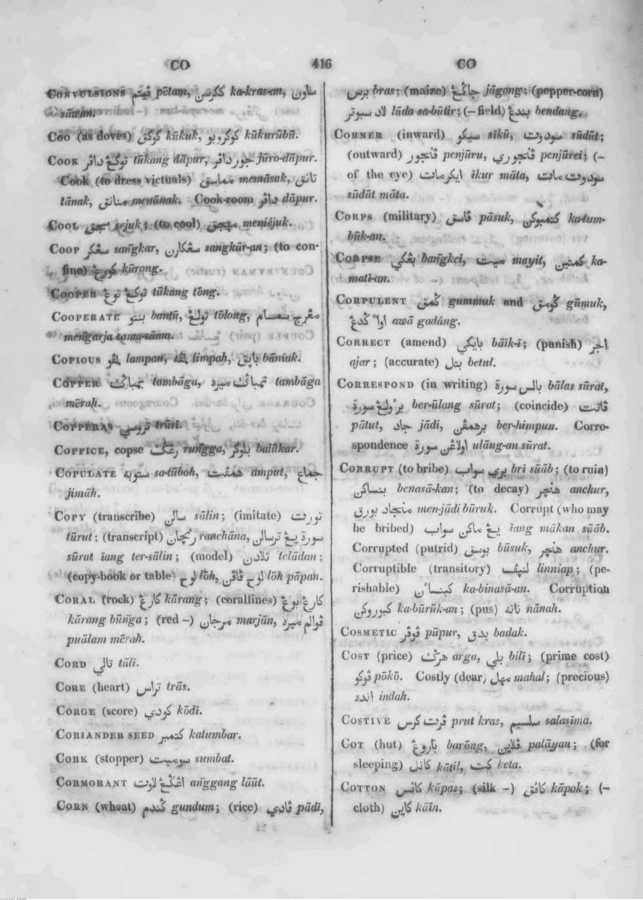 CO 416 CO
CONVULSIONS ڤيتم pētam, ككرسن ka-kras-an, ساون
sāwan.
COO (as doves) كوكق kūkuk, كوكروبو kūkurūbū.
COOK توكڠ داڤر tūkang dāpur, جوردافر jūro-dāpur.
Cook (to dress victuals) مماسق memāsak, تانق
tānak, منانق menānak. Cook-room داڤر dāpur.
COOL سجق sejuk; (to cool) مڽجق meniējuk.
COOP سڠكر sangkar, سڠكارن sangkār-an; (to con-
fine) كورڠ kūrong.
COOPER توكڠ توڠ tūkang tōng.
COOPERATE بنتو bantū, تولڠ tōlong, مڠرج سمسام
mengarja sama-sāma.
COPIOUS لمڤو lampau, لمڤه limpah, باپق bāniak.
COPPER تمباݢ tambāga, تمباݢ ميره tambāga
mērah.
COPPERAS تروسي trūsi.
COPPICE, copse رڠݢ rungga, بلوكر balūkar.
COPULATE ستوبه sa-tūboh, همڤت amput, جماع
jimāh.
COPY (transcribe) سالن sālin; (imitate) تورت
tūrut; (transcript) رنچان ranchāna, سورة يڠ ترسالن
sūrat iang ter-sālin; (model) تلادن telādan;
(copy-book or table) لوح lōh, لوح ڤاڤن lōh pāpan.
CORAL (rock) كارڠ kārang; (corallines) كارڠ بوڠ
kārang būnga; (red –) مرجان marjān, ڤوالم ميره
puālam mērah.
CORD تالي tāli.
CORE (heart) تراس trās.
CORGE (score) كودي kōdi.
CORIANDER SEED كتمبر katumbar.
CORK (stopper) سومبت sumbat.
CORMORANT اڠݢڠ لاوت anggang lāūt.
CORN (wheat) ݢندم gundum; (rice) ڤادي pādi,
برس bras; (maize) جاݢڠ jāgong; (pepper-corn)
لاد سبوتر lāda sa-būtir; (– field) بندڠ bendang.
CORNER (inward) سيكو sikū, سودوت sūdūt;
(outward) ڤنجور penjūru, ڤنجوري penjūrei; (–
of the eye) ايكر مات ikur māta, سودوت مات
sūdūt māta.
CORPS (military) ڤاسق pāsuk, كتمبوكن ka-tum-
būk-an.
CORPSE بڠكي bangkei, ميت mayit, كمتين ka-
mati-an.
CORPULENT ݢمق gummuk and ݢومق gūmuk,
اوا ݢدڠ awā gadāng.
CORRECT (amend) بايكي bāik-i; (punish) اجر
ajar; (accurate) بتل betul.
CORRESPOND (in writing) بالس سورة bālas sūrat,
براولڠ سورة ber-ūlang sūrat; (coincide) ڤاتت
pātut, جاد jādi, برهمڤن ber-himpun. Corre-
spondence اولاڠن سورة ulāng-an sūrat.
CORRUPT (to bribe) بري سواب bri sūāb; (to ruin)
بناساكن benasā-kan; (to decay) هنچر anchur,
منجاد بورق men-jādi būruk. Corrupt (who may
be bribed) يڠ ماكن سواب iang mākan sūāb.
Corrupted (putrid) بوسق būsuk, هنچر anchur.
Corruptible (transitory) لنيڤ linniap; (pe-
rishable) كبناسان ka-binasā-an. Corruption
كبوروكن ka-būrūk-an; (pus) نانه nānah.
COSMETIC ڤوڤر pūpur, بدق badak.
COST (price) هرݢ arga, بلي bilī; (prime cost)
ڤوكو pōkō. Costly (dear) مهل mahal; (precious)
انده indah.
COSTIVE ڤرت كرس prut kras, سلسيم salasima.
COT (hut) باروڠ barōng, ڤلاين palāyan; (for
sleeping) كاتل kātil, كت keta.
COTTON كاڤس kāpas; (silk –) كاڤق kāpok; (–
cloth) كاين kāin.